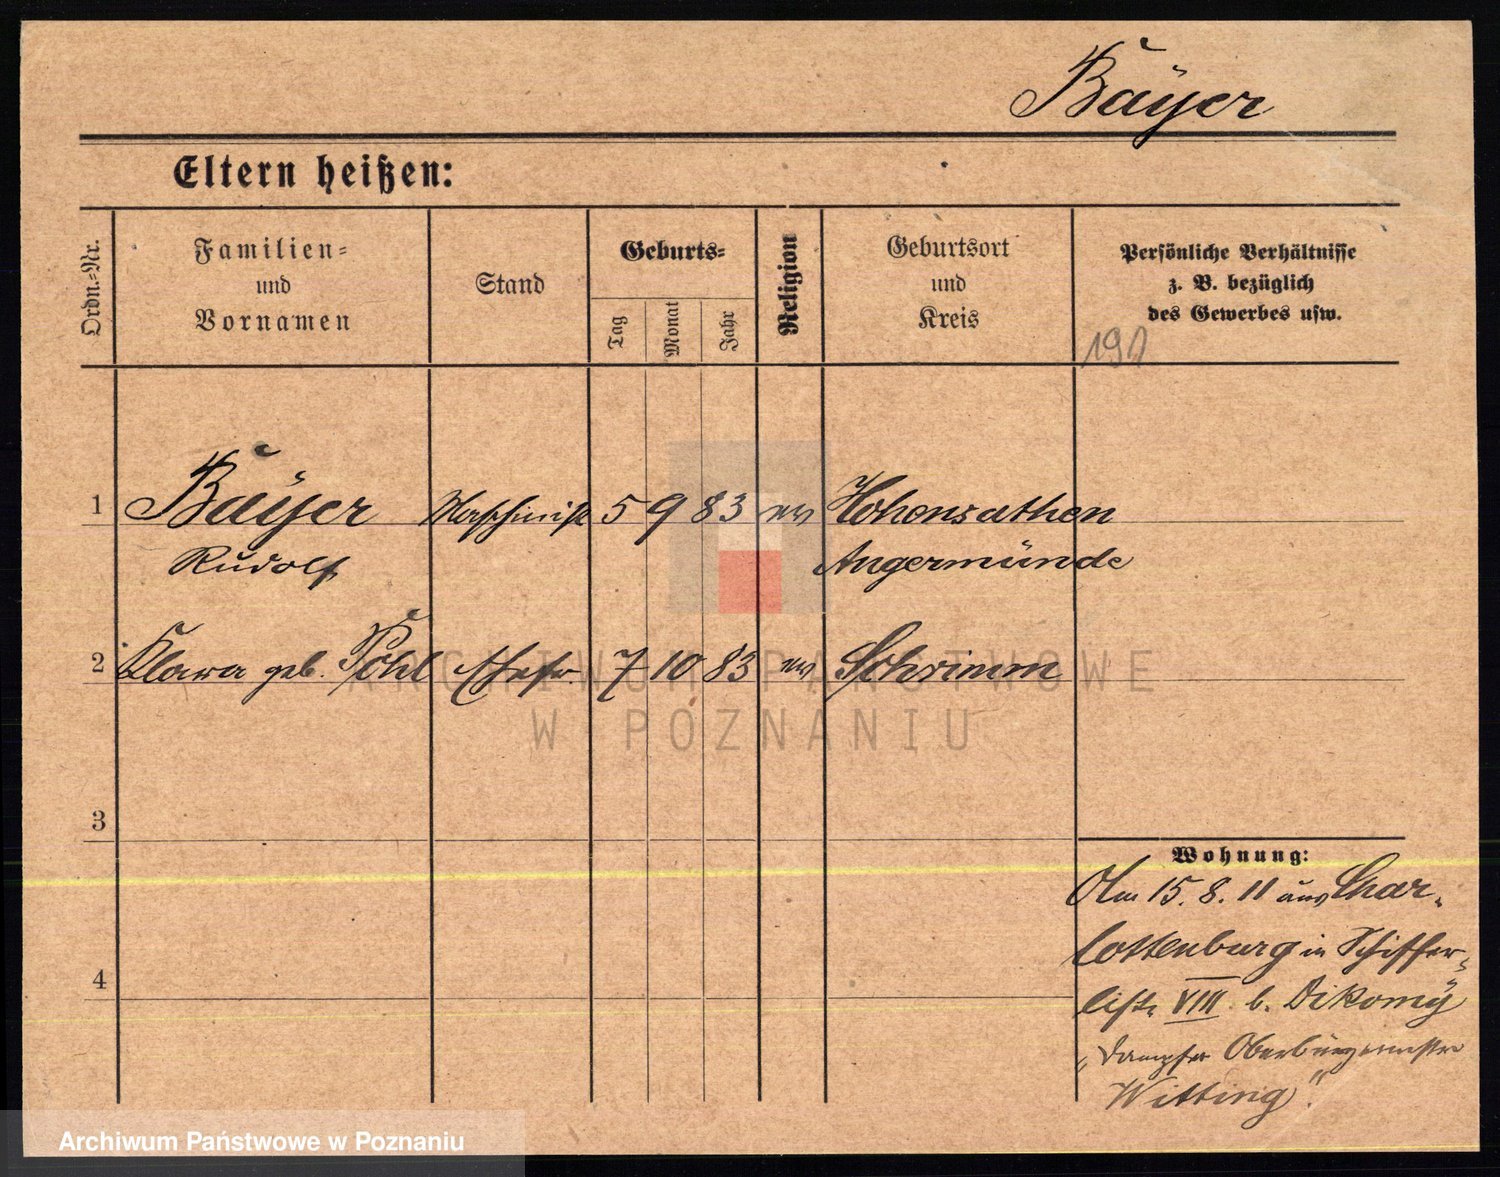 Bäyer
Eltern heißen:
Ordn.-Nr.
Familien-
und
Vornamen
Stand
Geburts-
Tag
Monat
Jahr
Religion
Geburtsort
und
Kreis
Persönliche Verhältnisse
z. B. bezüglich
des Gewerbes usw.
191
1 Bäyer Maschinist 5 9 83 ev Hohensathen
Rudolf Angermünde
2 Klara geb. Pohl Ehefr. 7 10 83 ev Schrimm
3
4
Wohnung:
Am 15. 8. 11 aus Char-
lottenburg in Schiffer-
liste VIII b. Dikomÿ
„Dampfer Oberbürgermstr
Witting".
ARCHIWUM PAŃSTWOWE
W POZNANIU
Archiwum Państwowe w Poznaniu